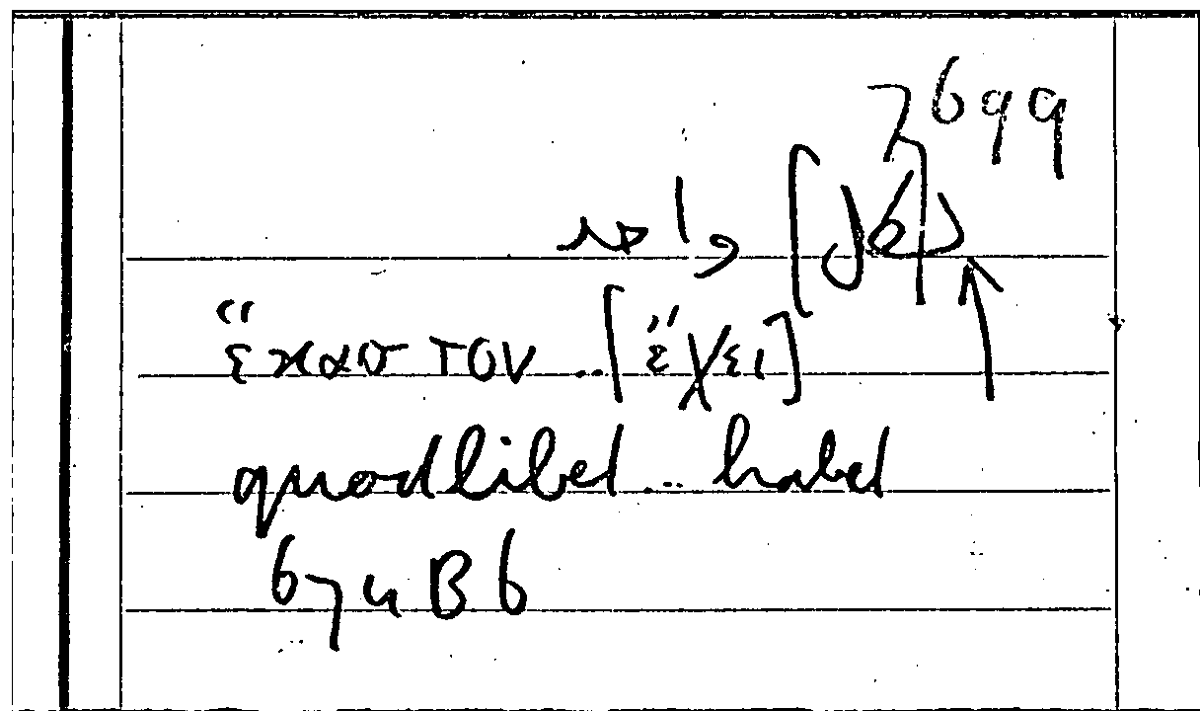 7699
[لكل]
ἕκαστον .. [ἔχει]
quodlibet .. habet
674 B 6